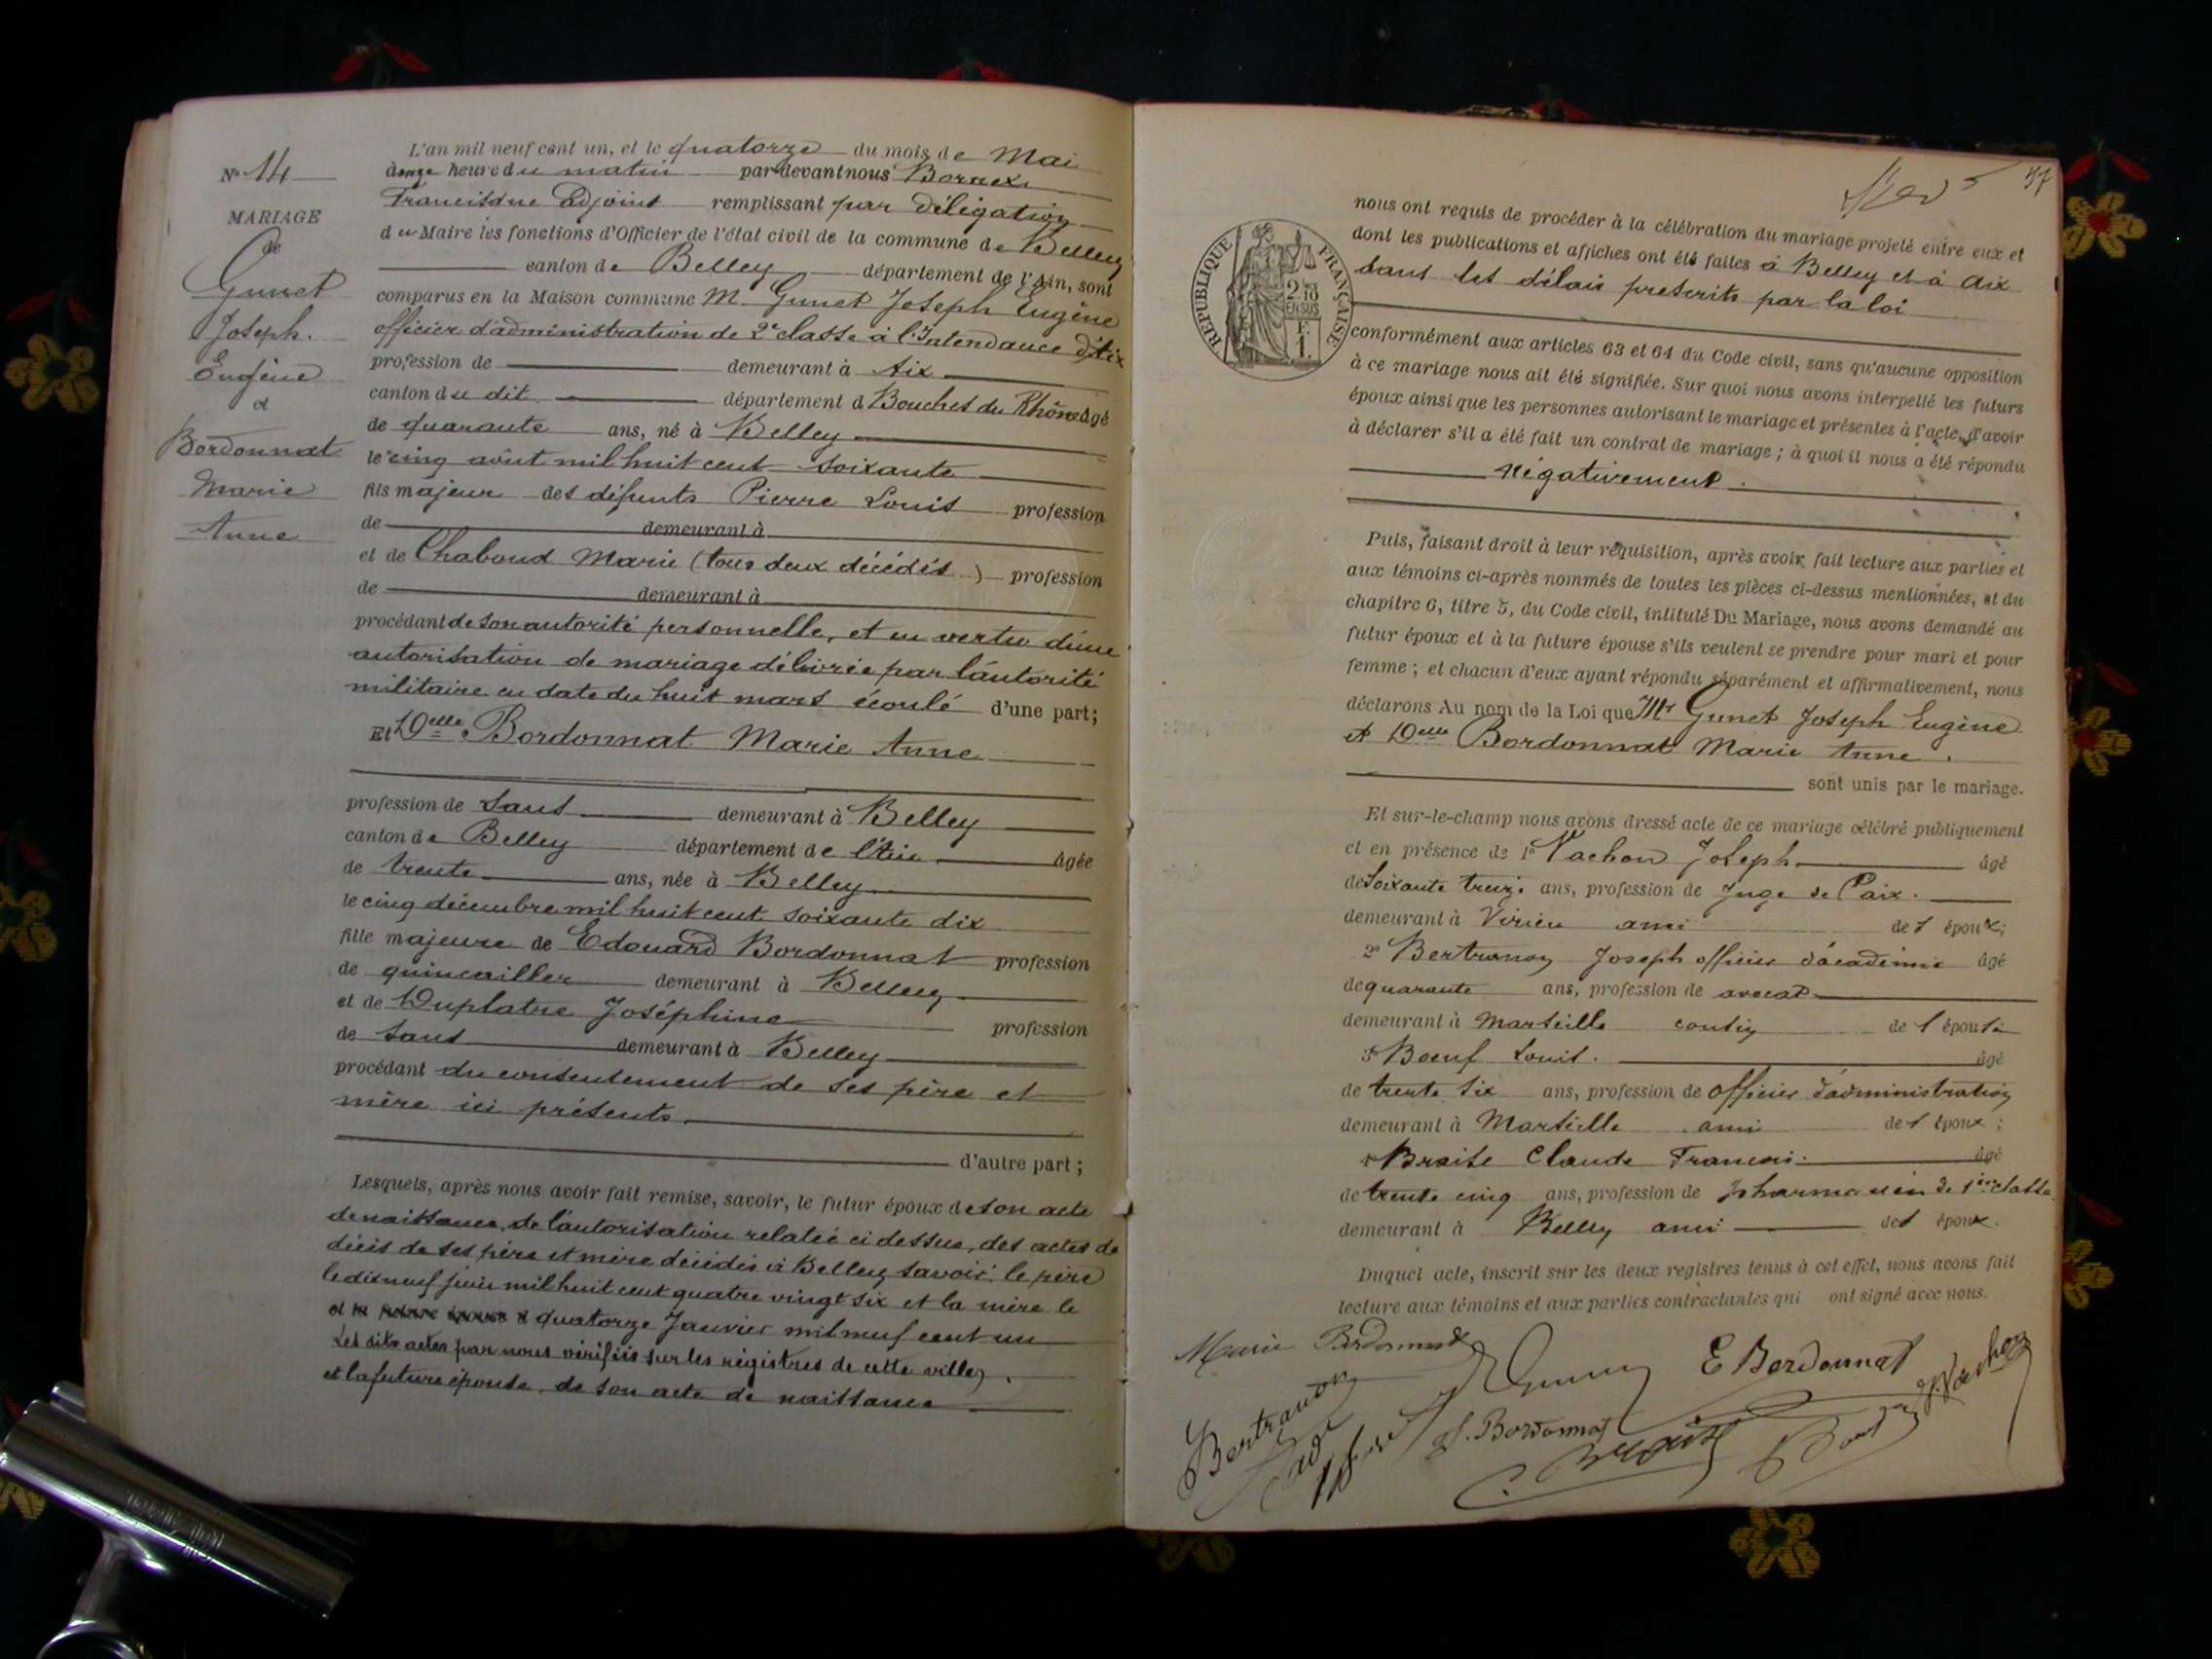 N° 14
MARIAGE
de
Gunet
Joseph.
Eugène
et
Bordonnat
Marie
Anne
L'an mil neuf cent un, et le quatorze du mois de Mai
à onze heure du matin par devant nous Bornex
Francisque Adjoint remplissant par déligation
du Maire les fonctions d'Officier de l'état civil de la commune de Belley
canton de Belley département de l'Ain, sont
comparus en la Maison commune M. Gunet Joseph Eugène
officier d'administration de 2e classe à l'Intendance d'Aix
profession de demeurant à Aix
canton du dit département d Bouches du Rhône âgé
de quarante ans, né à Belley
le cinq août mil huit cent soixante
fils majeur des défunts Pierre Louis profession
de demeurant à
et de Chaboud Marie (tous deux décédés) profession
de demeurant à
procédant de son autorité personnelle, et en vertu d'une
autorisation de mariage délivrée par l'autorité
militaire en date du huit mars écoulé d'une part;
Et Delle Bordonnat Marie Anne
profession de sans demeurant à Belley
canton de Belley département de l'Ain âgée
de trente ans, née à Belley
le cinq décembre mil huit cent soixante dix
fille majeure de Edouard Bordonnat profession
de quincailler demeurant à Belley
et de Duplatre Joséphine profession
de sans demeurant à Belley
procédant du consentement de ses père et
mère ici présents.
d'autre part;
Lesquels, après nous avoir fait remise, savoir, le futur époux de son acte
de naissance, de l'autorisation relatée ci dessus, des actes de
décès de ses père et mère décédés à Belley savoir: le père
le dix neuf juin mil huit cent quatre vingt six et la mère le
et la future épouse d quatorze Janvier mil neuf cent un
Les dits actes par nous vérifiés sur les régistres de cette ville,
et la future épouse, de son acte de naissance
57
RÉPUBLIQUE FRANÇAISE
2/10
EN SUS
F.
1.
nous ont requis de procéder à la célébration du mariage projeté entre eux et
dont les publications et affiches ont été faites à Belley et à Aix
dans les délais prescrits par la loi
conformément aux articles 63 et 64 du Code civil, sans qu'aucune opposition
à ce mariage nous ait été signifiée. Sur quoi nous avons interpellé les futurs
époux ainsi que les personnes autorisant le mariage et présentes à l'acte, d'avoir
à déclarer s'il a été fait un contrat de mariage; à quoi il nous a été répondu
négativement.
Puis, faisant droit à leur réquisition, après avoir fait lecture aux parties et
aux témoins ci-après nommés de toutes les pièces ci-dessus mentionnées, et du
chapitre 6, titre 5, du Code civil, intitulé Du Mariage, nous avons demandé au
futur époux et à la future épouse s'ils veulent se prendre pour mari et pour
femme; et chacun d'eux ayant répondu séparément et affirmativement, nous
déclarons Au nom de la Loi que Mr Gunet Joseph Eugène
et Delle Bordonnat Marie Anne.
sont unis par le mariage.
Et sur-le-champ nous avons dressé acte de ce mariage célébré publiquement
et en présence de 1° Vachon Joseph âgé
de soixante treize ans, profession de Juge de Paix.
demeurant à Virieu ami de l époux;
2° Bertranon Joseph officier d'académie âgé
de quarante ans, profession de avocat
demeurant à Marseille cousin de l épouse
3° Boeuf Louis. âgé
de trente six ans, profession de officier d'administration
demeurant à Marseille ami de l époux;
4° Braise Claude François. âgé
de trente cinq ans, profession de pharmacien de 1ère classe
demeurant à Belley ami de l époux.
Duquel acte, inscrit sur les deux registres tenus à cet effet, nous avons fait
lecture aux témoins et aux parties contractantes qui ont signé avec nous.
Marie Bordonnat
E Bordonnat
J. Vachon
Bertranon
J. Bordonnat
C. Braise